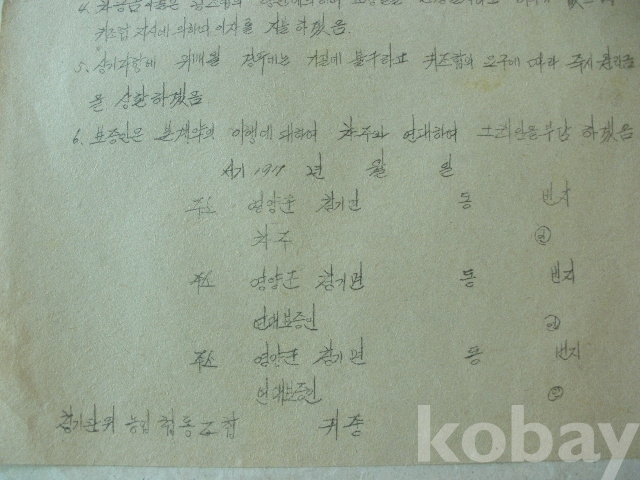 귀조합 지시에 의하여 이자를 지불 하겠음.
5. 상기사항에 위배될 경우에는 기일에 불구하고 귀조합의 요구에 따라 즉시
을 상환하겠음
6. 보증인은 본계약의 이행에 대하여 차주와 연대하여 책임을 부담 하겠음
서기 19 년 월 일
주소 영양군 청기면 동 번지
차주 인
주소 영양군 청기면 동 번지
연대보증인 인
주소 영양군 청기면 동 번지
연대보증인 인
청기단위 농업 협동조합 귀중
kobay